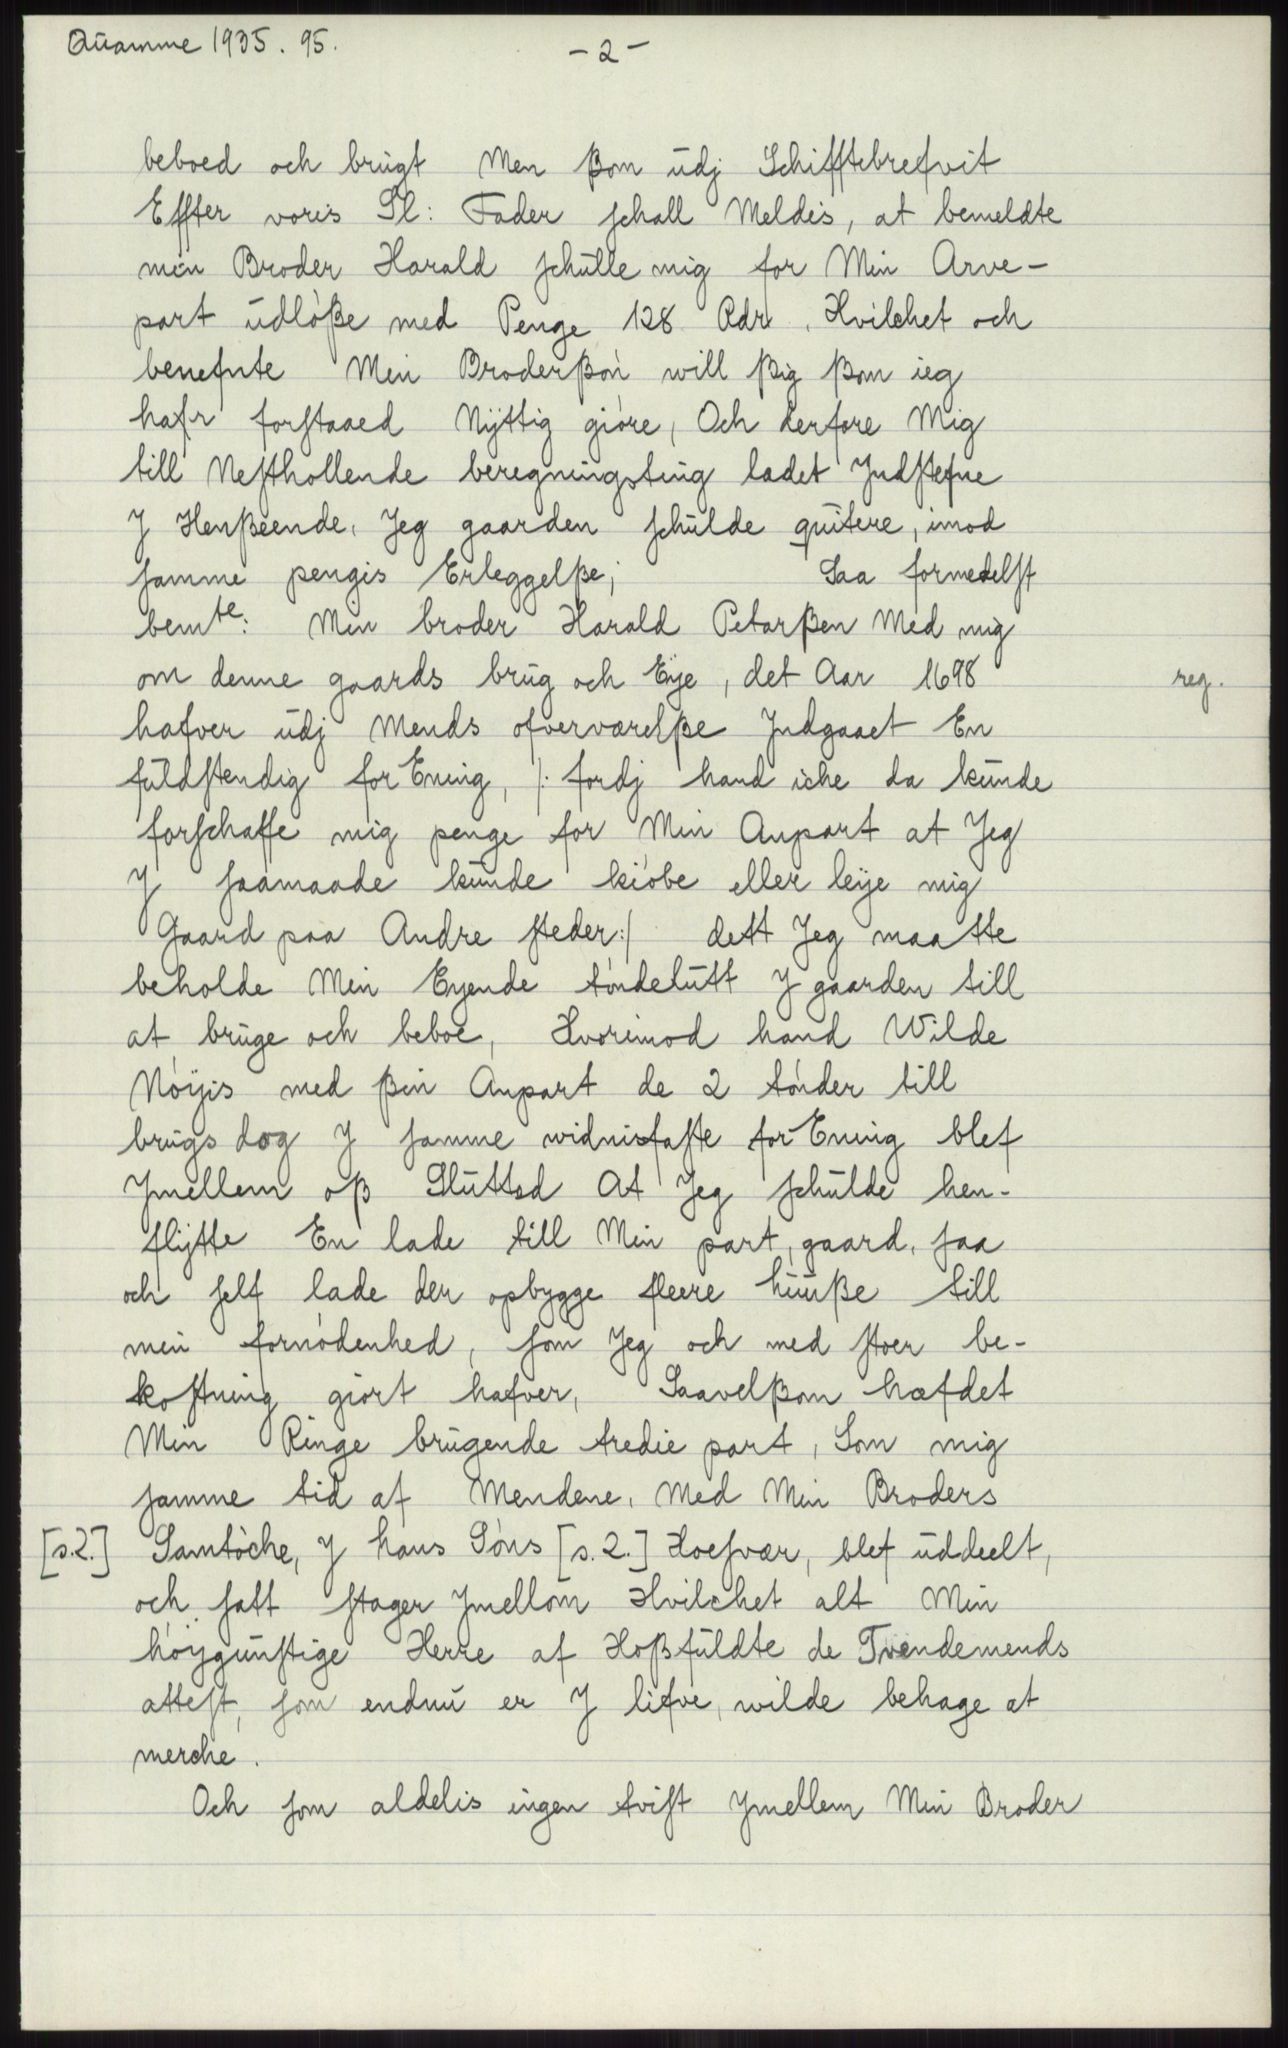 Quamme 1935. 95.
- 2 -
beboed och brugt Men ßom udj Schifftebrefvit
Effter voris Sl: Fader schall Meldis, at bemeldte
min Broder Harald schulle mig for Min Arve-
part udlöße med Penge 128 Rdr. Hvilchet och
benefnte Min Broderßön will ßig ßom ieg
hafr forstaaed Nÿttig giöre, Och derfore Mig
till Nesthollende beregningsting ladet Jndstefne
J Henßeende, Jeg gaarden schulde quitere, imod
samme pengis Erleggelße; Saa formedelst
bemte: Min broder Harald Petarßen Med mig
om denne gaards brug och Eÿe, det Aar 1698
reg.
hafver udj Mends ofverværelße Jndgaaet En
fuldstendig for Ening, /: fordj hand iche da kunde
forschaffe mig penge for Min Anpart at Jeg
J saamaade kunde kiöbe eller leÿe mig
Gaard paa Andre steder:/ dett Jeg maatte
beholde Min Eyende töndelutt J gaarden till
at bruge och beboe, Hvorimod hand Wilde
Nöÿis med ßin Anpart de 2 tönder till
brugs dog J samme widnisfaste for Ening blef
Jmellem oß Slutted At Jeg schulde hen-
flÿtte En lade till Min part, gaard, saa
och self lade der opbygge fleere huuße till
min fornödenhed, som Jeg och med stoer be-
kostning giort hafver, Saavelßom hæfdet
Min Ringe brugende tredie part, Som mig
samme tid af Mendene, Med Min Broders
[s.2.] Samtöche, J hans Söns [s.2.] Hoesvær, blef uddeelt,
och satt stager Jmellom Hvilchet alt Min
höÿgunstige Herre af Hoßfuldte de Tvendemends
attest, som endnu er J lifve, wilde behage at
merche.
Och som aldelis ingen tvist Jmellem Min Broder